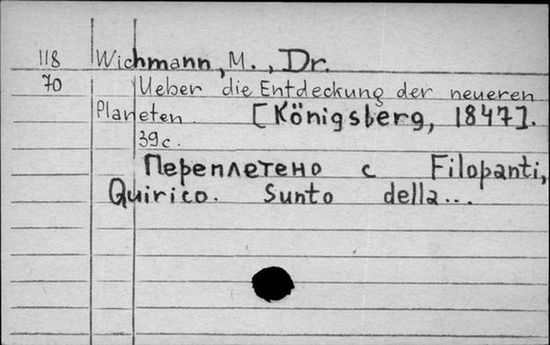 118 Wichmann, M., Dr.
70 Ueber die Entdeckung der neueren
Planeten. [Königsberg, 1847].
39 c.
Переплетено с Filopanti,
Quirico. Sunto della...